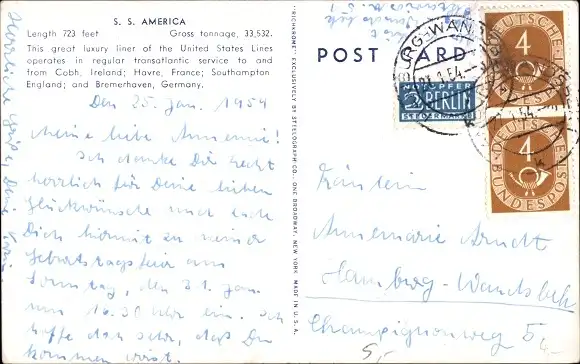 S. S. AMERICA
Length 723 feet Gross tonnage, 33,532.
This great luxury liner of the United States Lines
operates in regular transatlantic service to and
from Cobh, Ireland; Havre, France; Southampton
England; and Bremerhaven, Germany.
Den 25. Jan. 1954
Meine liebe Annemie!
Ich danke Dir recht
herzlich für Deine lieben
Glückwünsche und lade
Dich hiermit zu meiner
Geburtstagsfeier am
Sonntag, den 31. Jan.
um 16.30 Uhr ein. Ich
hoffe dan sehr, daß Du
kommen wirst.
Herzliche Grüße, Deine
"RICHROME" EXCLUSIVELY BY STEELOGRAPH CO. ONE BROADWAY, NEW YORK MADE IN U.S.A.
POST CARD
BURG-WANDSBEK
1.54.
NOTOPFER
2 BERLIN
STEUERMARKE
DEUTSCHE
4
BUNDESPOST
DEUTSCHE
4
BUNDESPOST
Fräulein
Annemarie Arndt
Hamburg-Wandsbek
Champignonweg 5
5,-